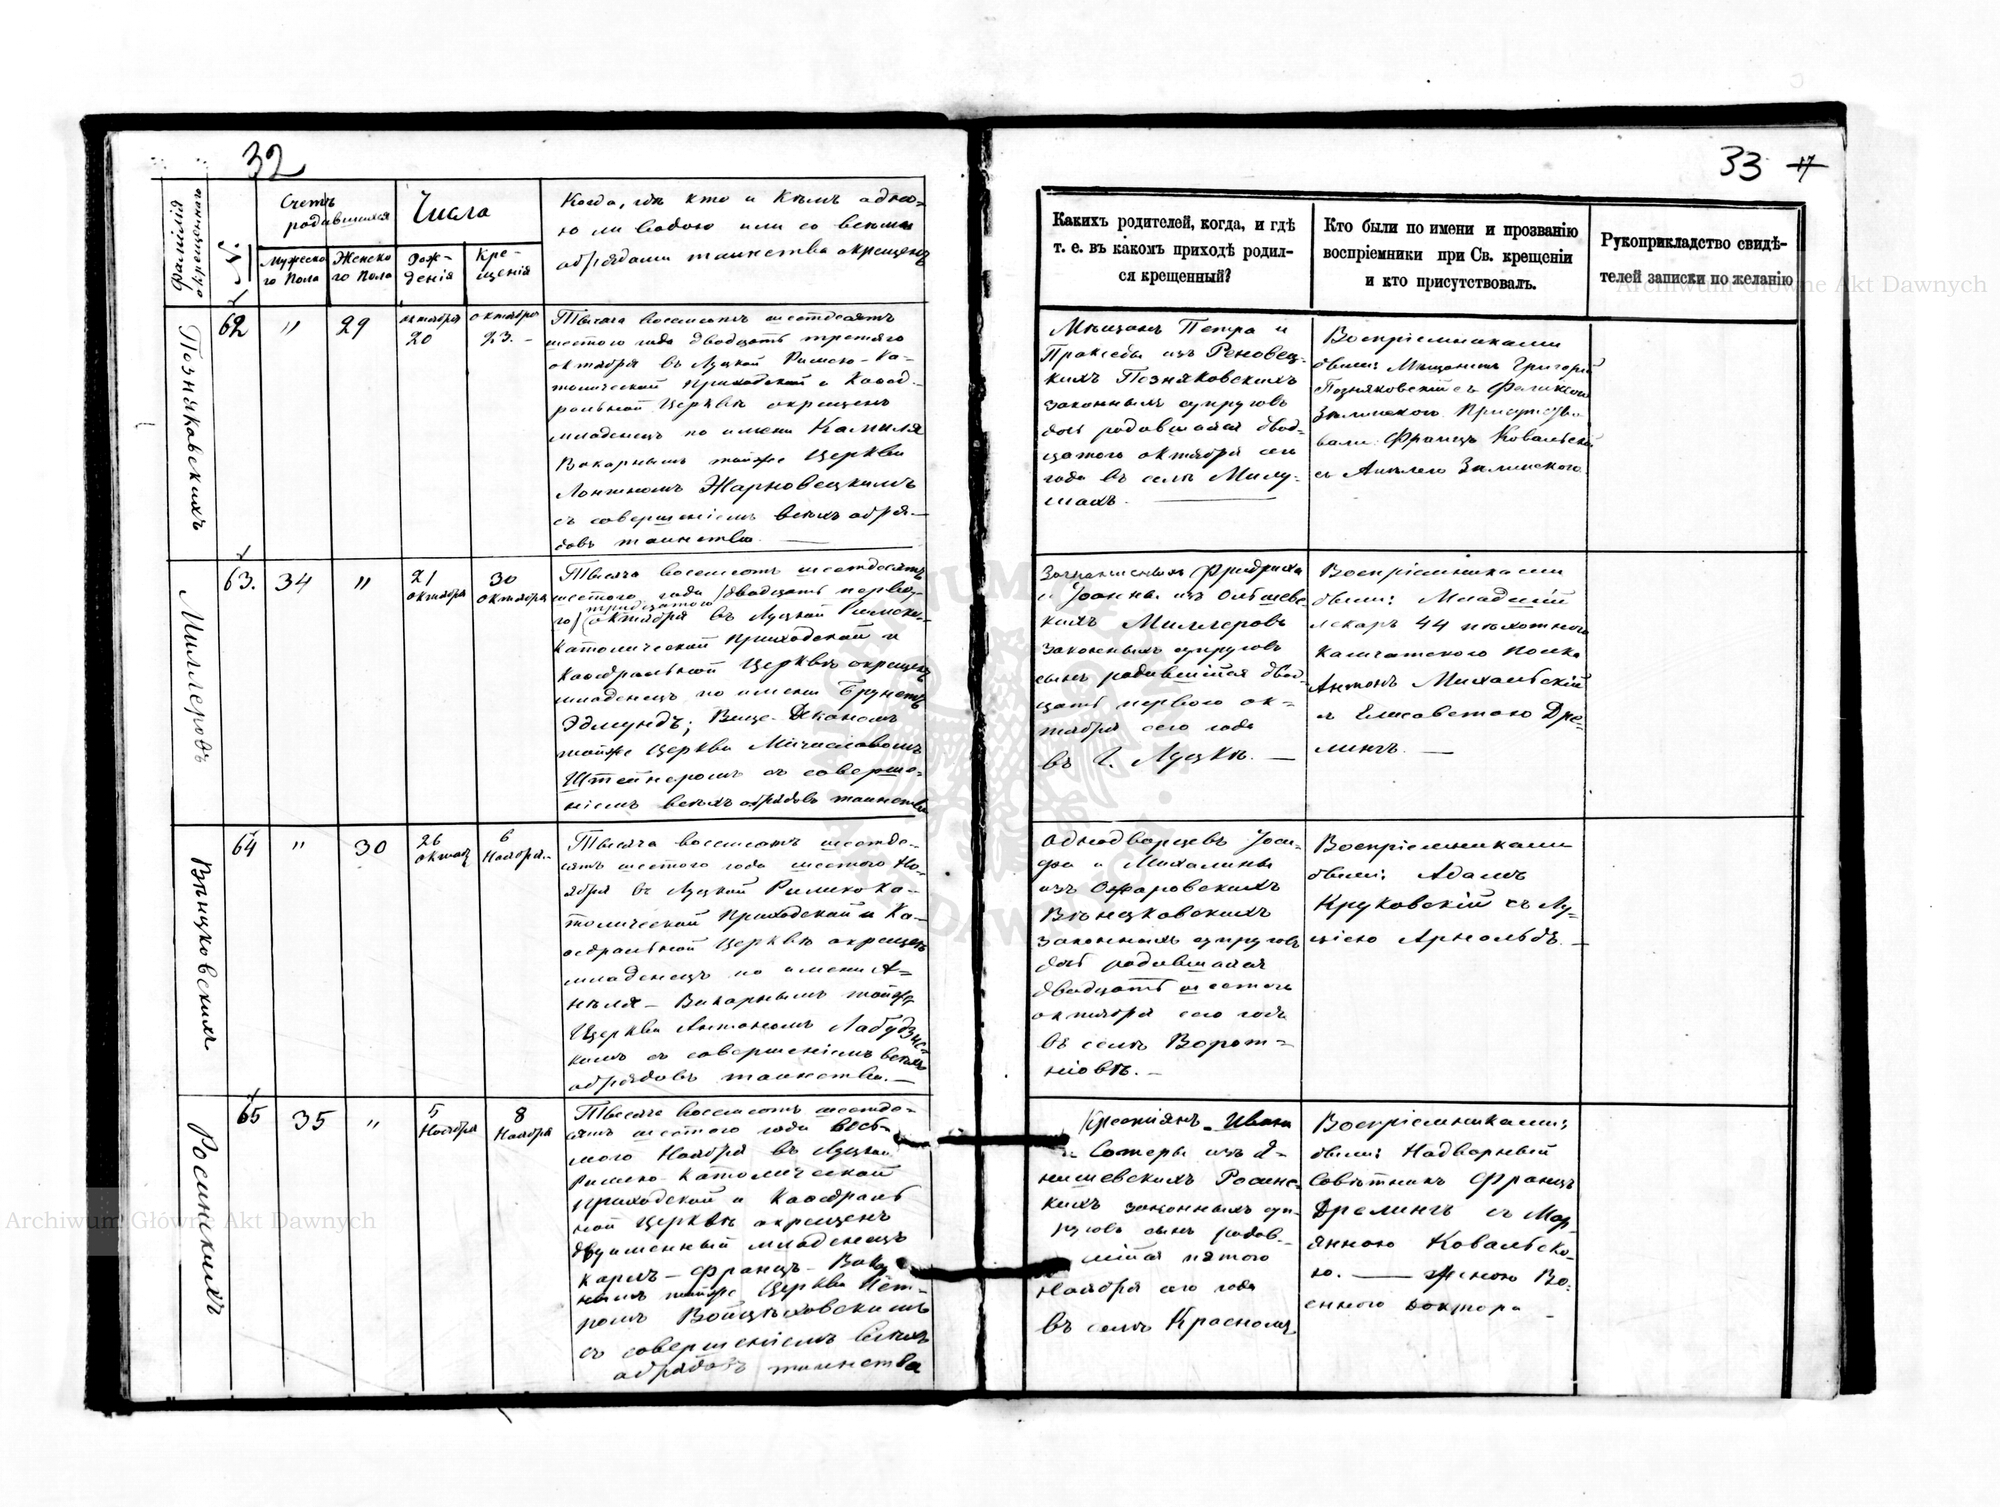 32
Счетъ
родившихся
Числа
№.
Мужеска-
го Пола
Женска-
го Пола
Рож-
денія
Кре-
щенія
Когда, гдѣ кто и Кѣмъ одно-
ю ли водою или со всѣми
обрядами таинства окрещенъ
Позняковскихъ
62
"
29
октября
20
октября
23.-
Тысяча восемсотъ шестдесятъ
шестого года двадцать третяго
октября въ Луцкой Римско-Ка-
толической Приходской и Каѳед-
ральной Церквѣ окрещенъ
младенецъ по имени Камилля
Викарнымъ тойже Церкви
Лонгиномъ Жарновецкимъ
съ совершеніемъ всѣхъ обря-
довъ таинства.
Миллеровъ
63.
34
"
21
октября
30
октября
Тысяча восемсотъ шестдесятъ
шестого года /двадцать перво-
го/ тридцатого
октября въ Луцкой Римско-
Католической Приходской и
Каѳедральной Церквѣ окрещенъ
младенецъ по имени Брунетъ
Эдмундъ; Вице-Деканомъ
тойже Церкви Мѣчиславомъ
Штейнеромъ съ соверше-
ніемъ всѣхъ обрядовъ таинства
Вѣнцковскихъ
64
"
30
26
октяб
6
Ноября.
Тысяча восемсотъ шестде-
сятъ шестого года шестого Но-
ября въ Луцкой Римско Ка-
толической Приходской и Ка-
ѳедральной Церквѣ окрещенъ
младенецъ по имени А-
нѣля - Викарнымъ тойже
Церкви Антономъ Лабудзис-
кимъ съ совершеніемъ всѣхъ
обрядовъ таинства.
Росинскихъ
65
35
"
5
Ноября
8
Ноября
Тысяча восемсотъ шестде-
сятъ шестого года вось-
мого Ноября въ Луцкой
Римско-Католической
Приходской и Каѳедраль
ной Церквѣ окрещенъ
двуименный младенецъ
Карлъ - Францъ - Викар
нымъ тойже Церкви Пет-
ромъ Войцѣховскимъ
съ совершеніемъ всѣхъ
обрядовъ таинства
33 17
Какихъ родителей, когда, и гдѣ
т. е. въ какомъ приходѣ родил-
ся крещенный?
Кто были по имени и прозванію
воспріемники при Св. крещеніи
и кто присутствовалъ.
Рукоприкладство свидѣ-
телей записки по желанію
Мѣщанъ Петра и
Праксѣды изъ Реновец-
кихъ Позняковскихъ
законныхъ супруговъ
дочь родившаяся двад-
цатого октября сего
года въ селѣ Милу-
шахъ.
Воспріемниками
были: Мѣщанинъ Григорій
Позняковскій съ Феликсою
Зѣлинскою Присутство
вали: Францъ Ковальскій
съ Анѣлею Зѣлинскою.
Заграничныхъ Фридриха
и Іоанны изъ Ольшевс-
кихъ Миллеровъ
законныхъ супруговъ
сынъ родившійся двад-
цать первого ок-
тября сего года
въ Г. Луцкѣ.
Воспріемниками
были: Младшій
лекарь 44 пѣхотного
Камчатского полка
Антонъ Михальскій
съ Елисаветою Дре-
лингъ.
Однодворцевъ Іоси-
фа и Михалины
изъ Ожаровскихъ
Вѣнцковскихъ
законныхъ супруговъ
дочь родившаяся
двадцать шестого
октября сего года
въ селѣ Ворот-
ніовѣ.
Воспріемниками
были: Адамъ
Круковскій съ Лу-
ціею Арнольдъ.
Крестіянъ Ивана
и Сотеры изъ Я-
нишевскихъ Росинс-
кихъ законныхъ суп-
руговъ сынъ родив-
шійся пятого
Ноября сего года
въ селѣ Красномъ.
Воспріемниками:
были: Надворный
Совѣтникъ Францъ
Дрелингъ съ Мар-
янною Ковальско-
ю. - женою Во-
енного доктора
Archiwum Główne Akt Dawnych
Archiwum Główne Akt Dawnych